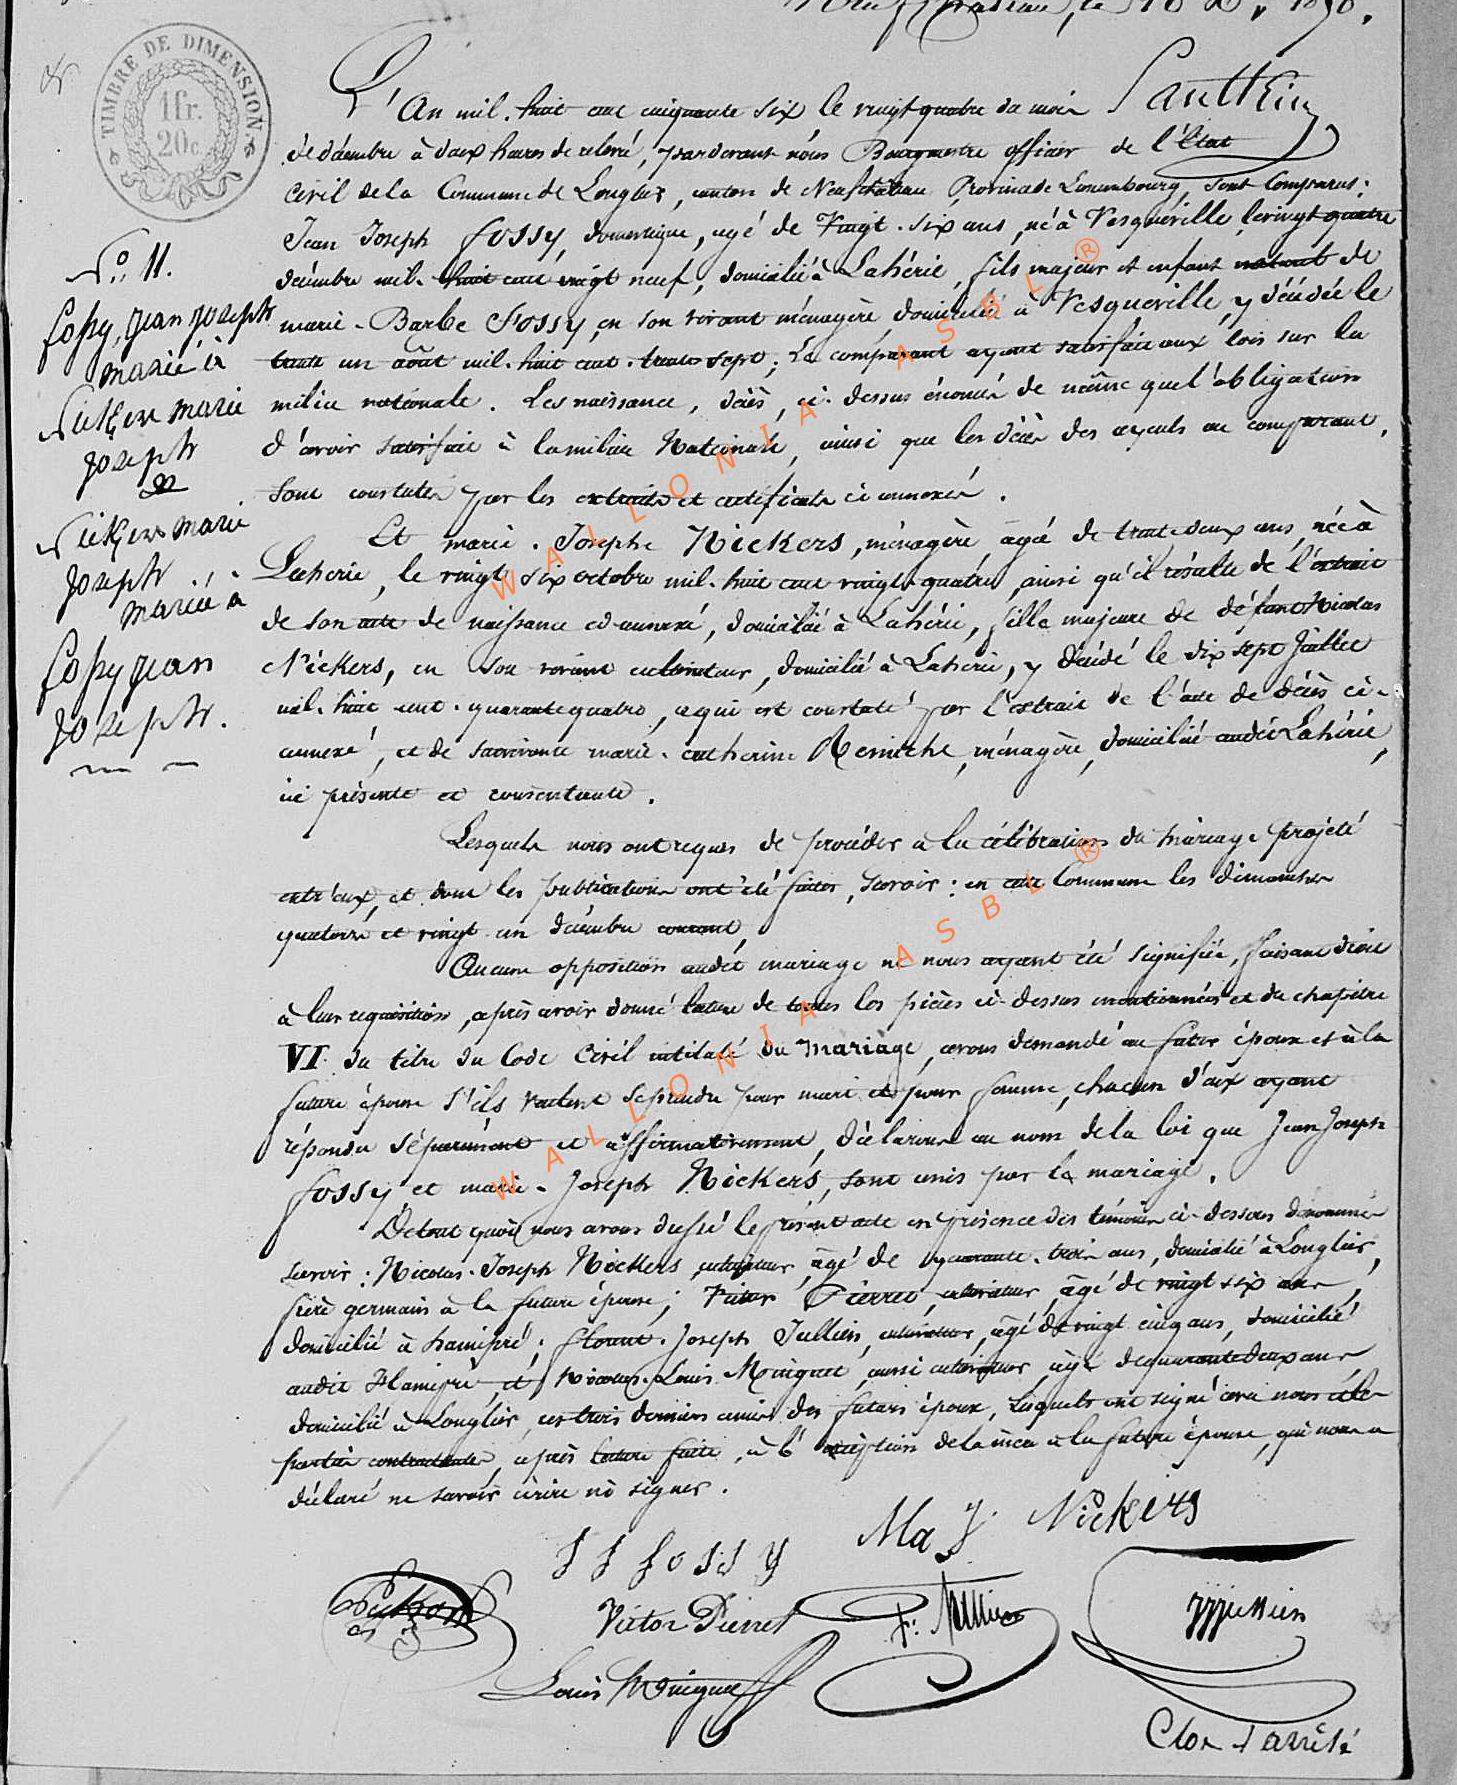 TIMBRE DE DIMENSION
1fr.
20c.
L'An mil-huit cent cinquante six le vingt quatre du mois
de décembre à deux heures de relevé, pardevant nous Bourgmestre officier de l'état
civil de la Commune de Longlier, canton de Neufchâteau Province de Luxembourg, sont Comparus:
Jean Joseph Fossy, domestique, agé de Vingt-six ans, né à Vesqueville, le vingt quatre
décembre mil-huit cent vingt neuf, domicilié à Lahérie, fils majeur et enfant naturel de
marie-Barbe Fossy, en son vivant ménagère, domiciliée à Vesqueville, y décédée le
trente un août mil-huit cent-trente sept; Le comparant ayant satisfait aux lois sur la
milice nationale. Les naissance, décès, ci-dessus énoncés de même que l'obligation
d'avoir satisfait à la milice Nationale, ainsi que les décès des ayeuls du comparant,
sont constatés par les extraits et certificats ci annexés.
Et marie-Josephe Nickers, ménagère, agée de trente deux ans, née à
Laherie, le vingt six octobre mil-huit cent vingt-quatre, ainsi qu'il résulte de l'extrait
de son acte de naissance ci-annexé, domiciliée à Lahérie, fille majeure de défunt Nicolas
Nickers, en son vivant cultivateur, domicilié à Laherie, y décédé le dix sept Juillet
mil-huit cent-quarante quatre, ce qui est constaté par l'extrait de l'acte de décès ci-
annexé, et de survivante marie-catherine Reniche, ménagère, domiciliée audit Lahérie,
ici présente et consentante.
Lesquels nous ont requis de procéder à la célébration du mariage projeté
entr'eux, et dont les publications ont été faites, savoir: en cette Commune les dimanches
quatorze et vingt un décembre courant,
Aucune opposition audit mariage ne nous ayant été signifiée, faisant droit
à leur requisition, après avoir donné lecture de toutes les pièces ci-dessus mentionnées et du chapitre
VI du titre du Code Civil intitulé du Mariage, avons demandé au futur époux et à la
future épouse s'ils veulent se prendre pour mari et pour femme, chacun d'eux ayant
répondu séparément et affirmativement, déclarons au nom de la loi que Jean Joseph
Fossy et marie-Joseph Nickers, sont unis par le mariage.
De tout quoi nous avons dressé le présent acte en présence des témoins ci-dessous dénommés
savoir: Nicolas-Joseph Nickers, cultivateur, âgé de quarante-trois ans, domicilié à Longlier,
frère germain à la future épouse; Victor Pierret, cultivateur, âgé de vingt six ans,
domicilié à hamipré; Joseph Jullien, cultivateur, âgé de vingt cinq ans, domicilié
audit Hamipré, et Nicolas-Louis Moinguet, aussi cultivateur, âgé de quarante deux ans
domicilié à Longlier, ces trois derniers amis des futurs époux, lesquels ont signé avec nous et les
parties contractantes, après lecture faite, à l'exception de la mère à la future épouse, qui nous a
déclaré ne savoir écrire ni signer.
No. 11.
Fossy, Jean Joseph
marié à
Nickers marie
Joseph
&
Nickers marie
Joseph
mariée à
Fossy Jean
Joseph.
Ma J. Nickers
J J Fossy
Victor Pierret
Louis Moinguet
Clos et arrêté
WALLONIA ASBL ®
WALLONIA ASBL ®